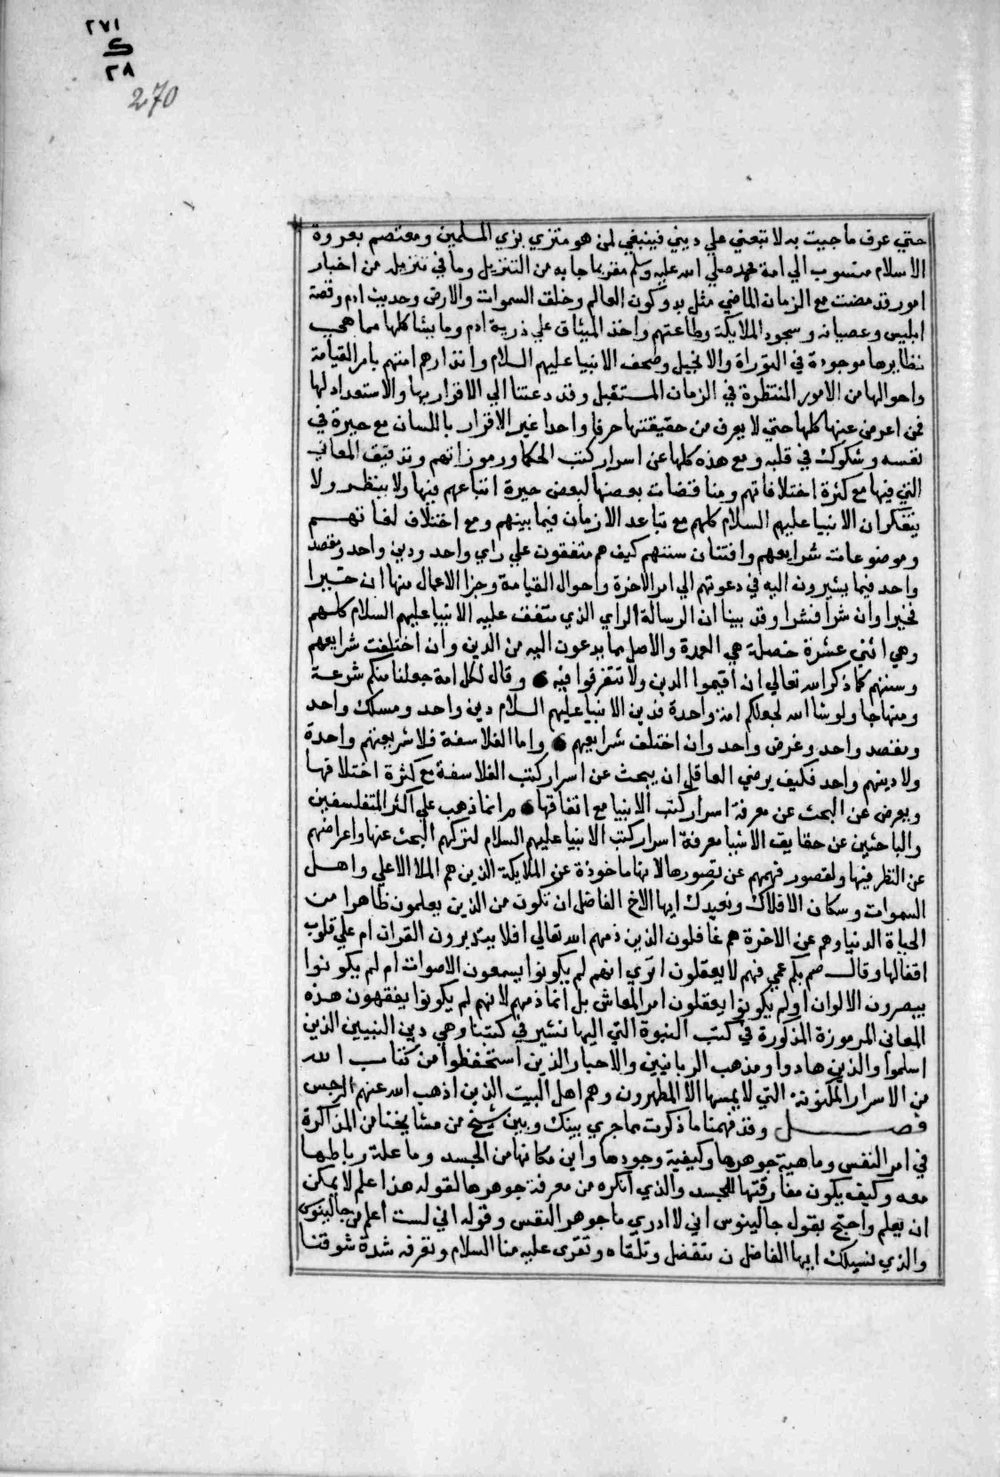 ٢٧١
ک
٢٨
270
حتي عرف ما جيت به لاتبعني علي ديني فينبغي لمن هو متزي بزي المسلمين ومعتصم بعروة
الاسلام منسوب الي امة محمد صلي الله عليه وسلم مقر بما جا به من التنزيل وما في تنزيله من اخبار
امور قد مضت مع الزمان الماضي مثل بدو كون العالم وخلق السموات والارض وحديث ادم وقصة
ابليس وعصيانه وسجود الملايكة وطاعتهم واخذ الميثاق علي ذرية ادم وما يشاكلها مما هي
نظايرها موجودة في التوراة والانجيل وصحف الانبيا عليهم السلام وانذارهم امتهم بامر القيامة
واحوالها من الامور المنتظرة في الزمان المستقبل وقد دعتنا الي الاقرار بها والاستعداد لها
فمن اعرض عنها كلها حتي لا يعرف من حقيقتها حرفا واحدا غير الاقرار باللسان مع حيرة في
نفسه وشكوك في قلبه ومع هذه كلها عن اسرار كتب الحكما ورموزاتهم وتدقيق المعاني
التي فيها مع كثرة اختلافاتهم ومناقضات بعضها لبعض حيرة اتباعهم فيها ولا ينظر ولا
يتفكر ان الانبيا عليهم السلام كلهم مع تباعد الازمان فيما بينهم ومع اختلاف لغاتهم
وموضوعات شرايعهم وافتنان سننهم كيف هم متفقون علي راي واحد ودين واحد ومقصد
واحد فيما يشيرون اليه في دعوتهم الي امر الاخرة واحوال القيامة وجزا الاعمال منها ان خيرا
فخيرا وان شرا فشرا وقد بينا ان الرسالة الراي الذي متفق عليه الانبيا عليهم السلام كلهم
وهي اثني عشرة خصلة هي العمدة والاصل بما يدعون اليه من الدين وان اختلفت شرايعهم
وسننهم كما ذكر الله تعالي ان اقيموا الدين ولا تتفرقوا فيه وقال لكل امة جعلنا منكم شرعة
ومنهاجا ولو شا الله لجعلكم امة واحدة فدين الانبيا عليهم السلام دين واحد ومسلك واحد
ومقصد واحد وغرض واحد وان اختلف شرايعهم واما الفلاسفة فلا شريعتهم واحدة
ولا دينهم واحد فكيف يرضي العاقل ان يبحث عن اسرار كتب الفلاسفة مع كثرة اختلافها
ويعرض عن البحث عن معرفة اسرار كتب الانبيا مع اتفاقها وانما ذهب علي اكثر المتفلسفين
والباحثين عن حقايق الاشيا معرفة اسرار كتب الانبيا عليهم السلام لتركهم البحث عنها واعراضهم
عن النظر فيها ولقصور فهمهم عن تصورها لانها ماخوذة عن الملايكة الذين هم الملا الاعلي واهل
السموات وسكان الافلاك ونعيذك ايها الاخ الفاضل ان تكون من الذين يعلمون ظاهرا من
الحياة الدنيا وهم عن الاخرة هم غافلون الذين ذمهم الله تعالي افلا يتدبرون القران ام علي قلوب
اقفالها وقال صم بكم عمي فهم لا يعقلون اتري انهم لم يكونوا يسمعون الاصوات ام لم يكونوا
يبصرون الالوان اولم يكونوا يعقلون امر المعاش بل انما ذمهم لانهم لم يكونوا يفقهون هذه
المعاني المرموزة المذكورة في كتب النبوة التي اليها نشير في كتبنا وهي دين النبيين الذين
اسلموا والذين هادوا ومذهب الربانيين والاحبار الذين استحفظوا من كتاب الله
من الاسرار المكنونة التي لا يمسها الا المطهرون وهم اهل البيت الذين اذهب الله عنهم الرجس
فصل وقد فهمنا ما ذكرت مما جري بينك وبين شيخ من مشايخنا من المذاكرة
في امر النفس وماهية جوهرها وكيفية وجودها واين مكانها من الجسد وما علة رباطها
معه وكيف يكون مفارقتها للجسد والذي انكره من معرفة جوهرها لقوله هذا علم لا يمكن
ان يعلم واحتج بقول جالينوس اني لا ادري ما جوهر النفس وقوله اني لست اعلم من جالينوس
والذي نسيلك ايها الفاضل ن تتفضل وتلقاه وتقرى عليه منا السلام وتعرفه شدة شوقنا